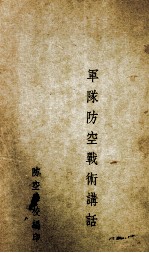 軍隊防空戰術講話
防空學校編印